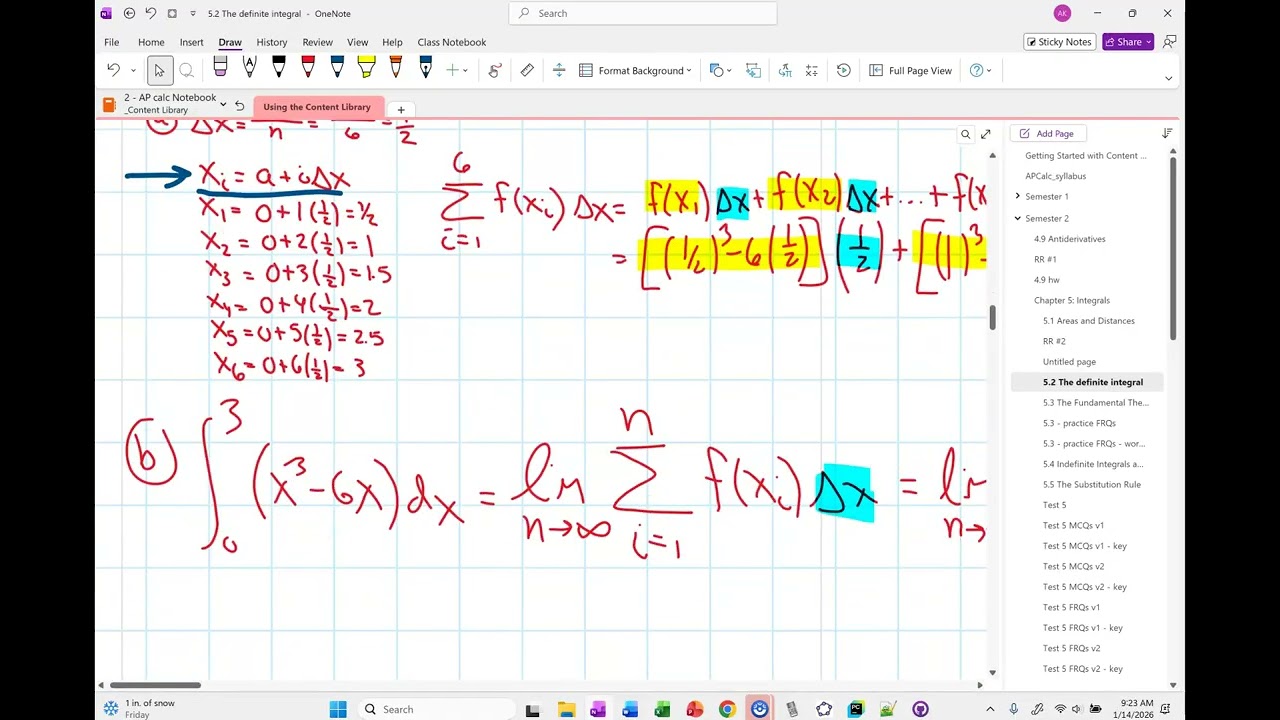 5.2 The definite integral - OneNote
Search
AK
File Home Insert Draw History Review View Help Class Notebook
Sticky Notes
Share
Format Background
Full Page View
2 - AP calc Notebook
_Content Library
Using the Content Library
Add Page
Getting Started with Content ...
APCalc_syllabus
Semester 1
Semester 2
4.9 Antiderivatives
RR #1
4.9 hw
Chapter 5: Integrals
5.1 Areas and Distances
RR #2
Untitled page
5.2 The definite integral
5.3 The Fundamental The...
5.3 - practice FRQs
5.3 - practice FRQs - wor...
5.4 Indefinite Integrals a...
5.5 The Substitution Rule
Test 5
Test 5 MCQs v1
Test 5 MCQs v1 - key
Test 5 MCQs v2
Test 5 MCQs v2 - key
Test 5 FRQs v1
Test 5 FRQs v1 - key
Test 5 FRQs v2
Test 5 FRQs v2 - key
(a) Δx = ―/n = ―/6 = 1/2
→ xᵢ = a + iΔx
x₁ = 0+1(1/2) = 1/2
x₂ = 0+2(1/2) = 1
x₃ = 0+3(1/2) = 1.5
x₄ = 0+4(1/2) = 2
x₅ = 0+5(1/2) = 2.5
x₆ = 0+6(1/2) = 3
6 Σ i=1 f(xᵢ) Δx = f(x₁) Δx + f(x₂) Δx + ... + f(x
= [(1/2)³ - 6(1/2)] (1/2) + [(1)³ -
(b) ∫₀³ (x³ - 6x) dx = lim n→∞ n Σ i=1 f(xᵢ) Δx = lim n→
1 in. of snow
Friday
Search
9:23 AM
1/14/2026